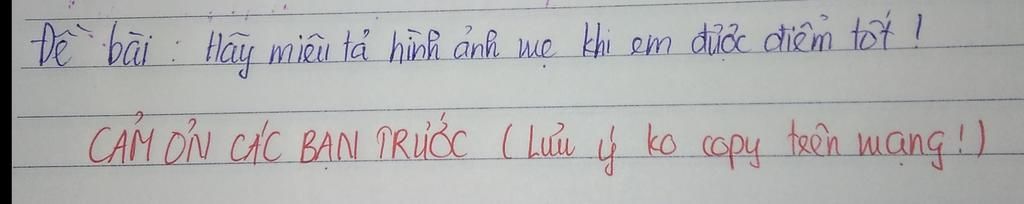 Đề bài : Hãy miêu tả hình ảnh mẹ khi em được điểm tốt !
CẢM ƠN CÁC BẠN TRƯỚC ( Lưu ý ko copy trên mạng ! )